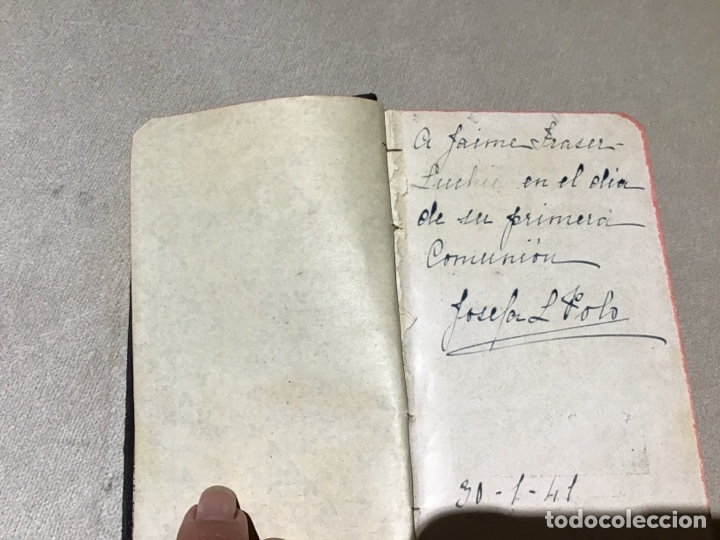 A Jaime Fraser-
Luckie en el dia
de su primera
Comunión
Josefa L Polo
30-1-41
todocoleccion.net